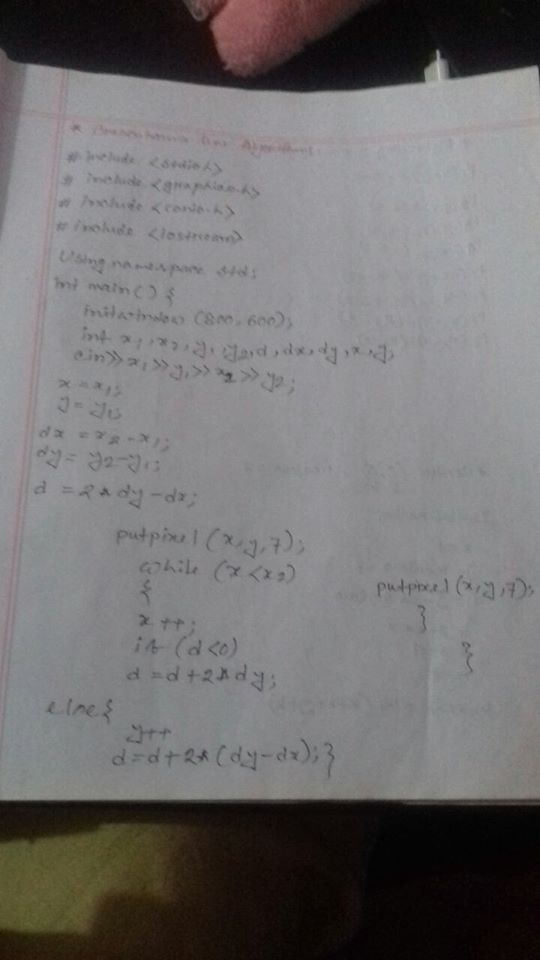 * Bresenhams Line Algorithm:
# include <stdio.h>
# include <graphics.h>
# include <conio.h>
# include <iostream>
Using namespace std;
int main() {
initwindow (800, 600);
int x1, x2, y1, y2, d, dx, dy, x, y;
cin>>x1>>y1>>x2>>y2;
x = x1;
y = y1;
dx = x2-x1;
dy = y2-y1;
d = 2*dy-dx;
putpixel (x,y,7);
while (x<x2)
{
x++;
if (d<0)
d=d+2*dy;
else{
y++
d=d+2*(dy-dx);}
putpixel (x,y,7);
}
}